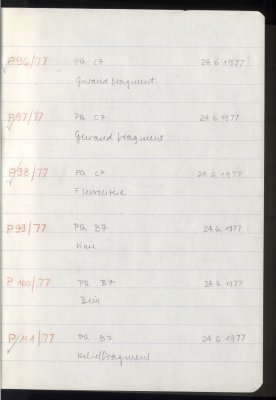 P96/77 PQ C7 24.6.1977
Gewandfragment
P97/77 PQ C7 24.6.1977
Gewandfragment
P98/77 PQ C7 24.6.1977
P99/77 PQ B7 24.6.1977
Knie
P100/77 PQ B7 24.6.1977
Bein
P101/77 PQ B7 24.6.1977
Relieffragment